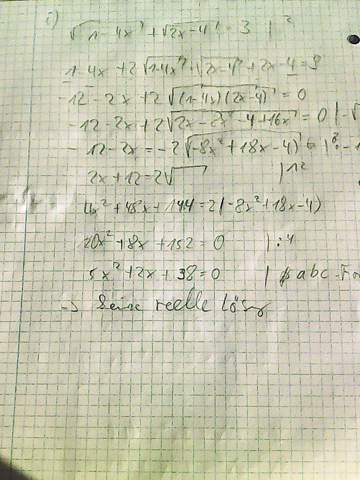 i)
√(1-4x) + √(2x-4) = 3 | ²
1-4x + 2√(1-4x) · √(2x-4) + 2x-4 = 9
-12 - 2x + 2√((1-4x)(2x-4)) = 0
-12 - 2x + 2√(2x - 2x² - 4 + 16x) = 0 | -√
-12 - 2x = -2√(-8x² + 18x - 4) | : -1
2x + 12 = 2√ | ²
4x² + 48x + 144 = 2(-8x² + 18x - 4)
20x² + 8x + 152 = 0 | : 4
5x² + 2x + 38 = 0 | abc-For
→ keine reelle Lösg